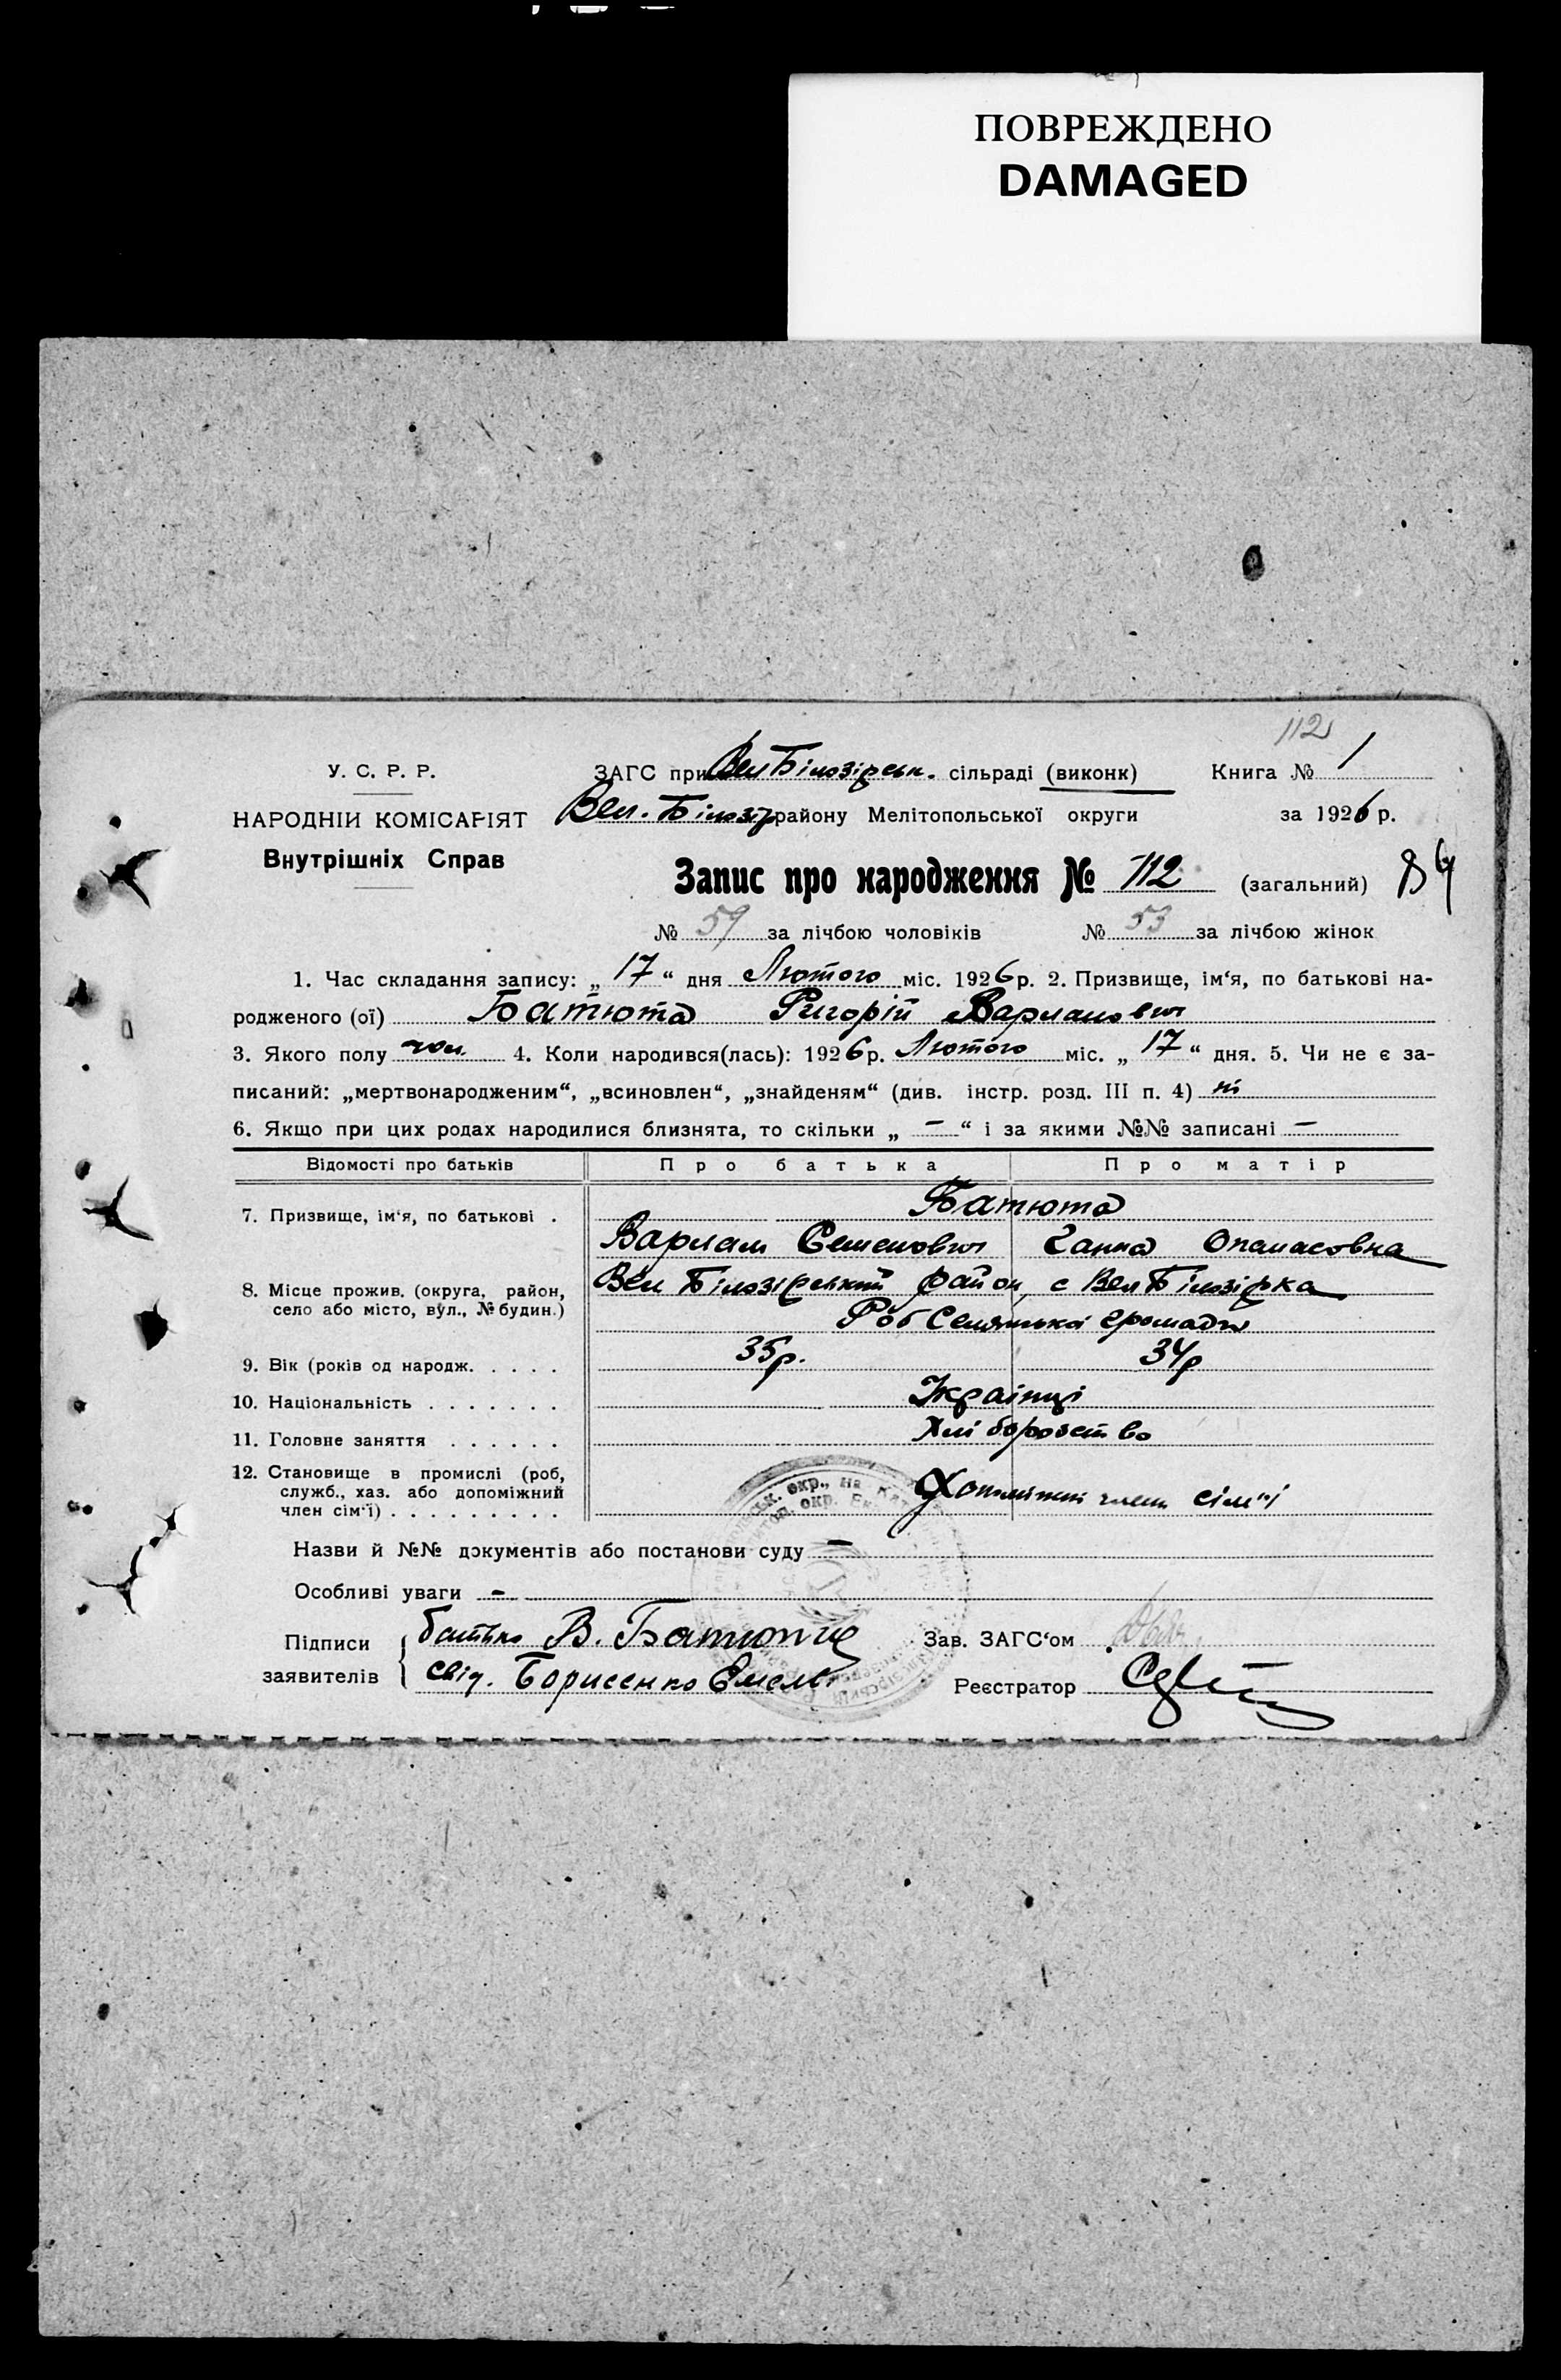 ПОВРЕЖДЕНО
DAMAGED
112
У. С. Р. Р.
ЗАГС при Вел Білозірськ. сільраді (виконк)
Книга № 1
НАРОДНІЙ КОМІСАРІЯТ
Вел. Білозір району Мелітопольської округи
за 1926 р.
Внутрішніх Справ
Запис про народження № 112 (загальний)
№ 59 за лічбою чоловіків № 53 за лічбою жінок
1. Час складання запису: „ 17 “ дня Лютого міс. 1926 р. 2. Призвище, ім‘я, по батькові на-
родженого (ої) Батюта Григорій Варламович
3. Якого полу чол. 4. Коли народився(лась): 1926 р. Лютого міс. „ 17 “ дня. 5. Чи не є за-
писаний: „мертвонародженим“, „всиновлен“, „знайденям“ (див. інстр. розд. III п. 4) ні
6. Якщо при цих родах народилися близнята, то скільки „ – “ і за якими №№ записані –
Відомості про батьків Про батька Про матір
7. Призвище, ім‘я, по батькові . Батюта
Варлам Семенович Ганна Опанасовна
8. Місце прожив. (округа, район, Вел Білозірський район, с Вел Білозірка
село або місто, вул., № будин.)
Селянської громади
9. Вік (років од народж. . . . . 35р. 34р
10. Національність . . . . . . . Українці
11. Головне заняття . . . . . . Хліборобство
12. Становище в промислі (роб,
служб., хаз. або допоміжний член сім'ї
член сім‘ї) . . . . . . . . .
Назви й №№ документів або постанови суду –
Особливі уваги –
Підписи батько В. Батюта Зав. ЗАГС‘ом
заявителів свід. Борисенко Емель Реєстратор